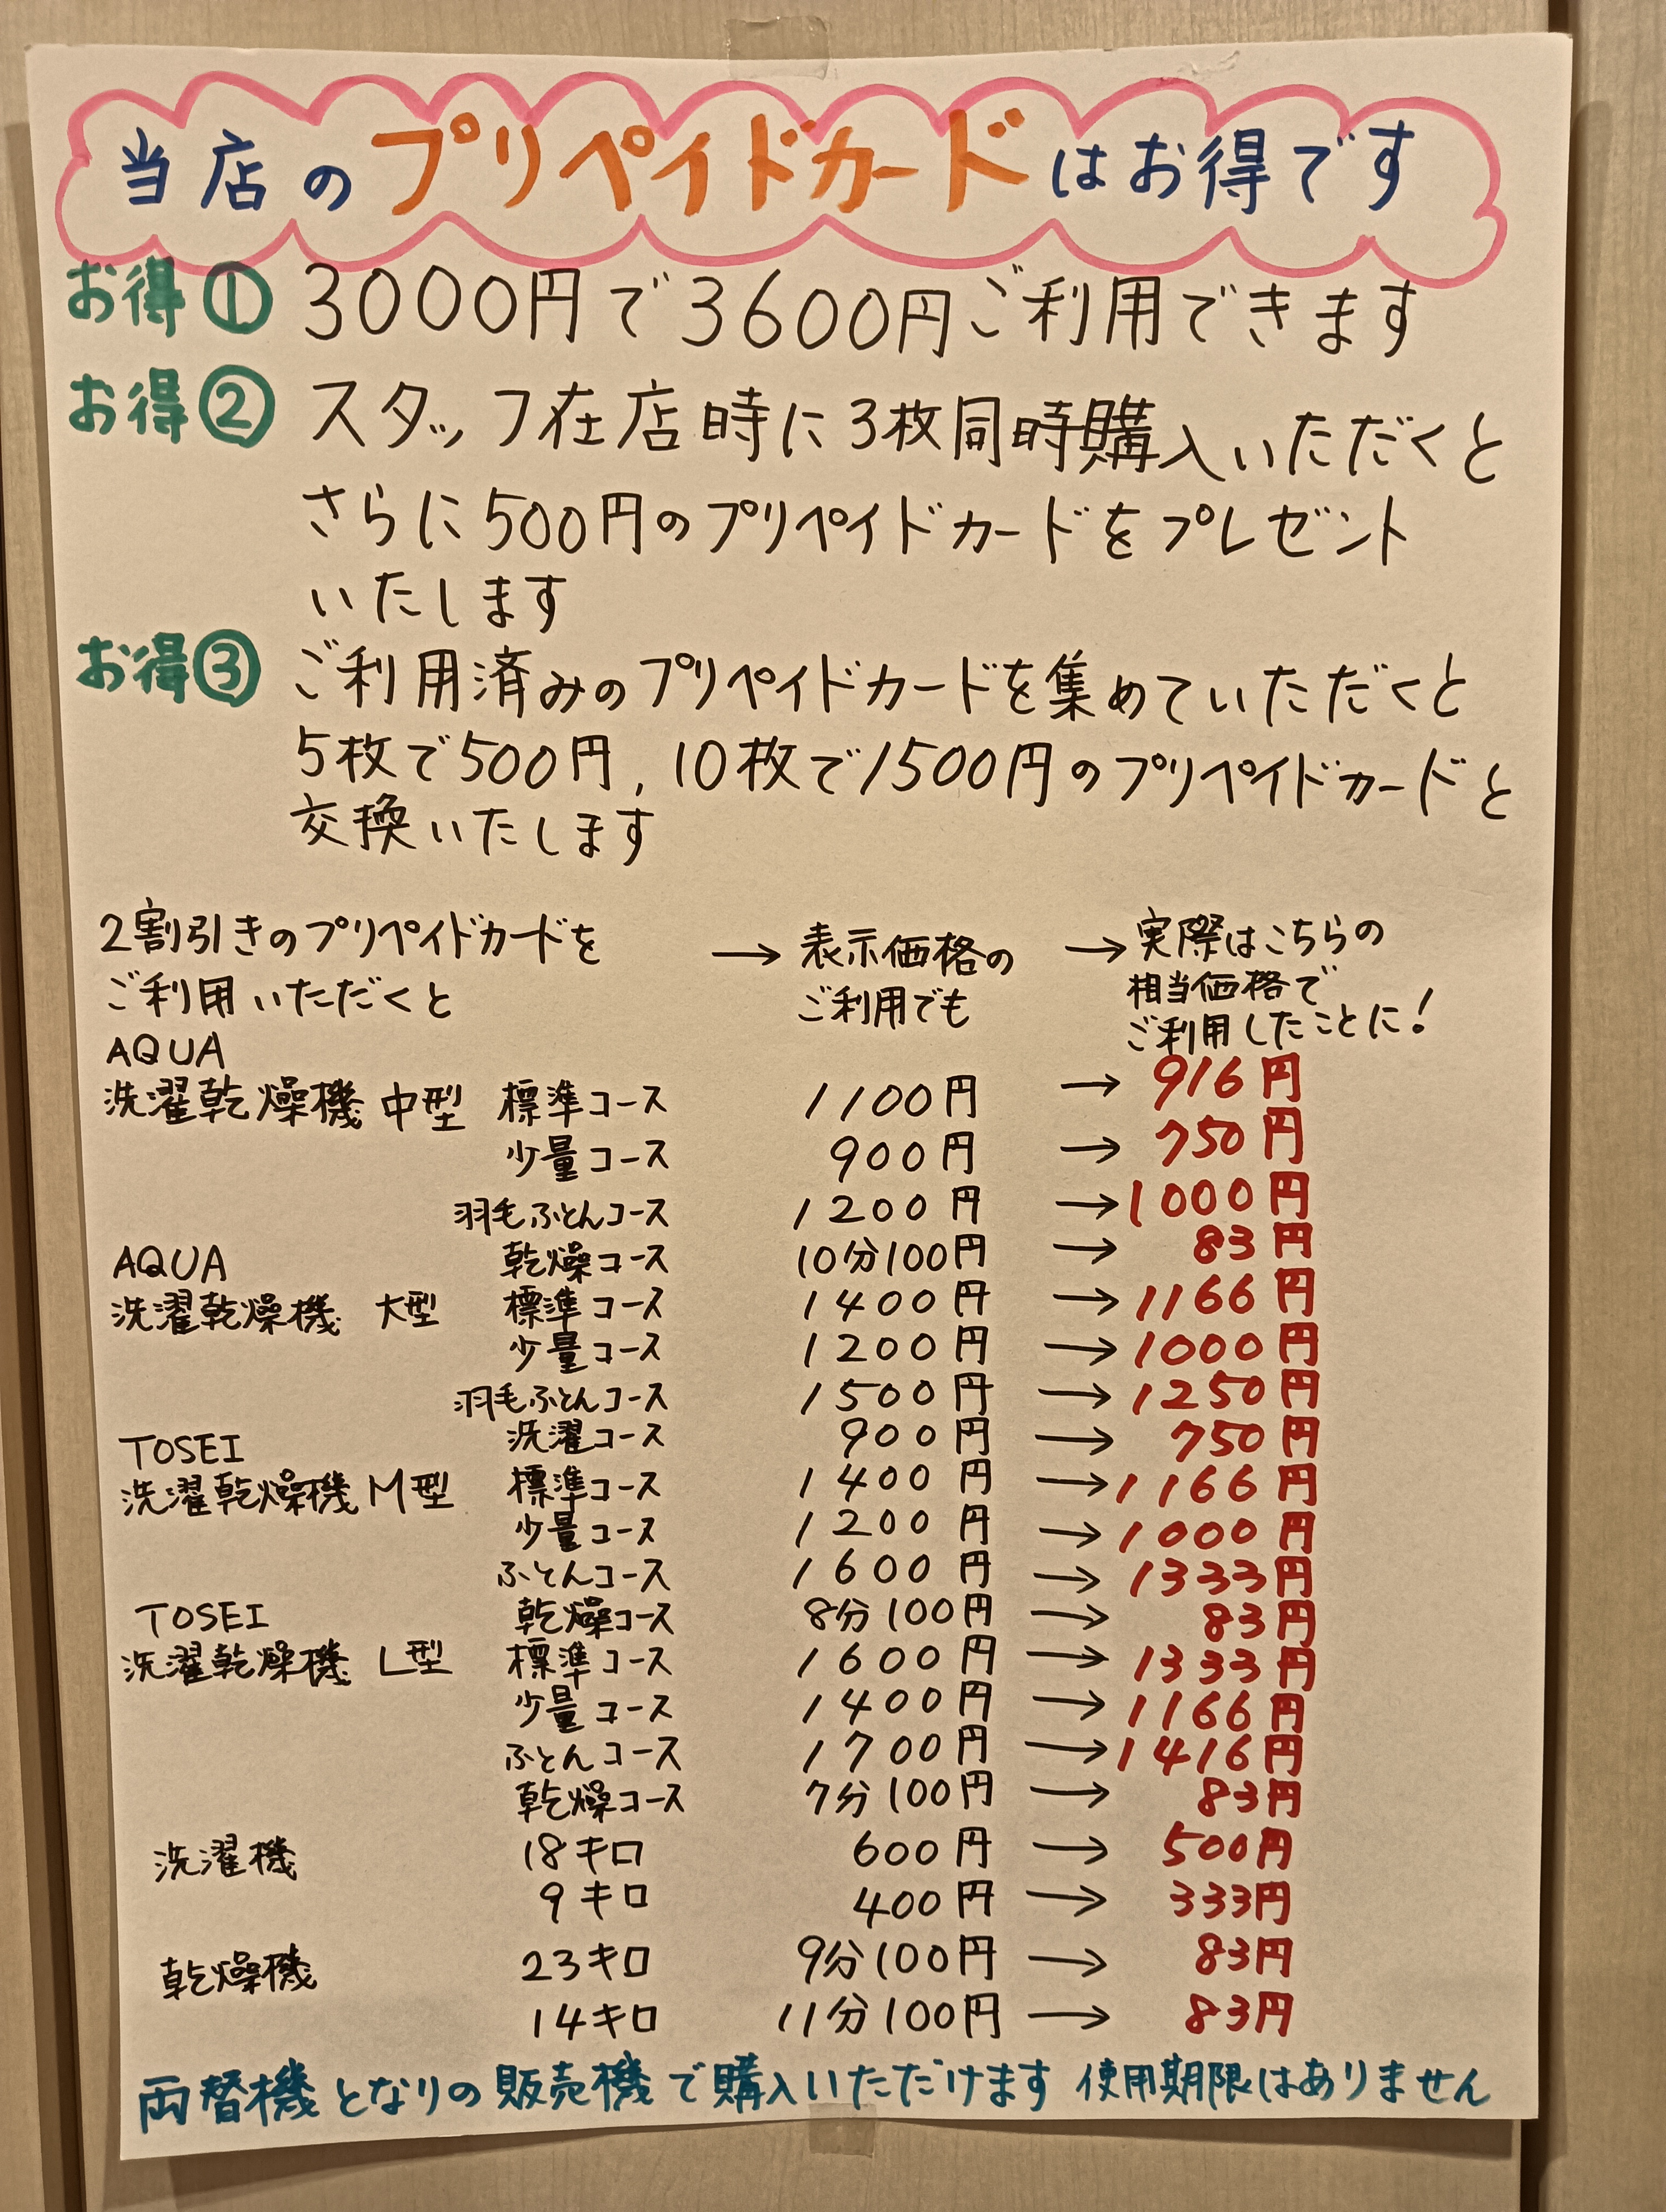 当店のプリペイドカードはお得です
お得① 3000円で3600円ご利用できます
お得② スタッフ在店時に3枚同時購入いただくと
さらに500円のプリペイドカードをプレゼント
いたします
お得③ ご利用済みのプリペイドカードを集めていただくと
5枚で500円,10枚で1500円のプリペイドカードと
交換いたします
2割引きのプリペイドカードを
ご利用いただくと
→ 表示価格の
ご利用でも
→ 実際はこちらの
相当価格で
ご利用したことに!
AQUA
洗濯乾燥機 中型 標準コース 1100円 → 916円
少量コース 900円 → 750円
羽毛ふとんコース 1200円 → 1000円
乾燥コース 10分100円 → 83円
AQUA
洗濯乾燥機 大型 標準コース 1400円 → 1166円
少量コース 1200円 → 1000円
羽毛ふとんコース 1500円 → 1250円
洗濯コース 900円 → 750円
TOSEI
洗濯乾燥機 M型 標準コース 1400円 → 1166円
少量コース 1200円 → 1000円
ふとんコース 1600円 → 1333円
乾燥コース 8分100円 → 83円
TOSEI
洗濯乾燥機 L型 標準コース 1600円 → 1333円
少量コース 1400円 → 1166円
ふとんコース 1700円 → 1416円
乾燥コース 7分100円 → 83円
洗濯機 18キロ 600円 → 500円
9キロ 400円 → 333円
乾燥機 23キロ 9分100円 → 83円
14キロ 11分100円 → 83円
両替機となりの販売機で購入いただけます 使用期限はありません